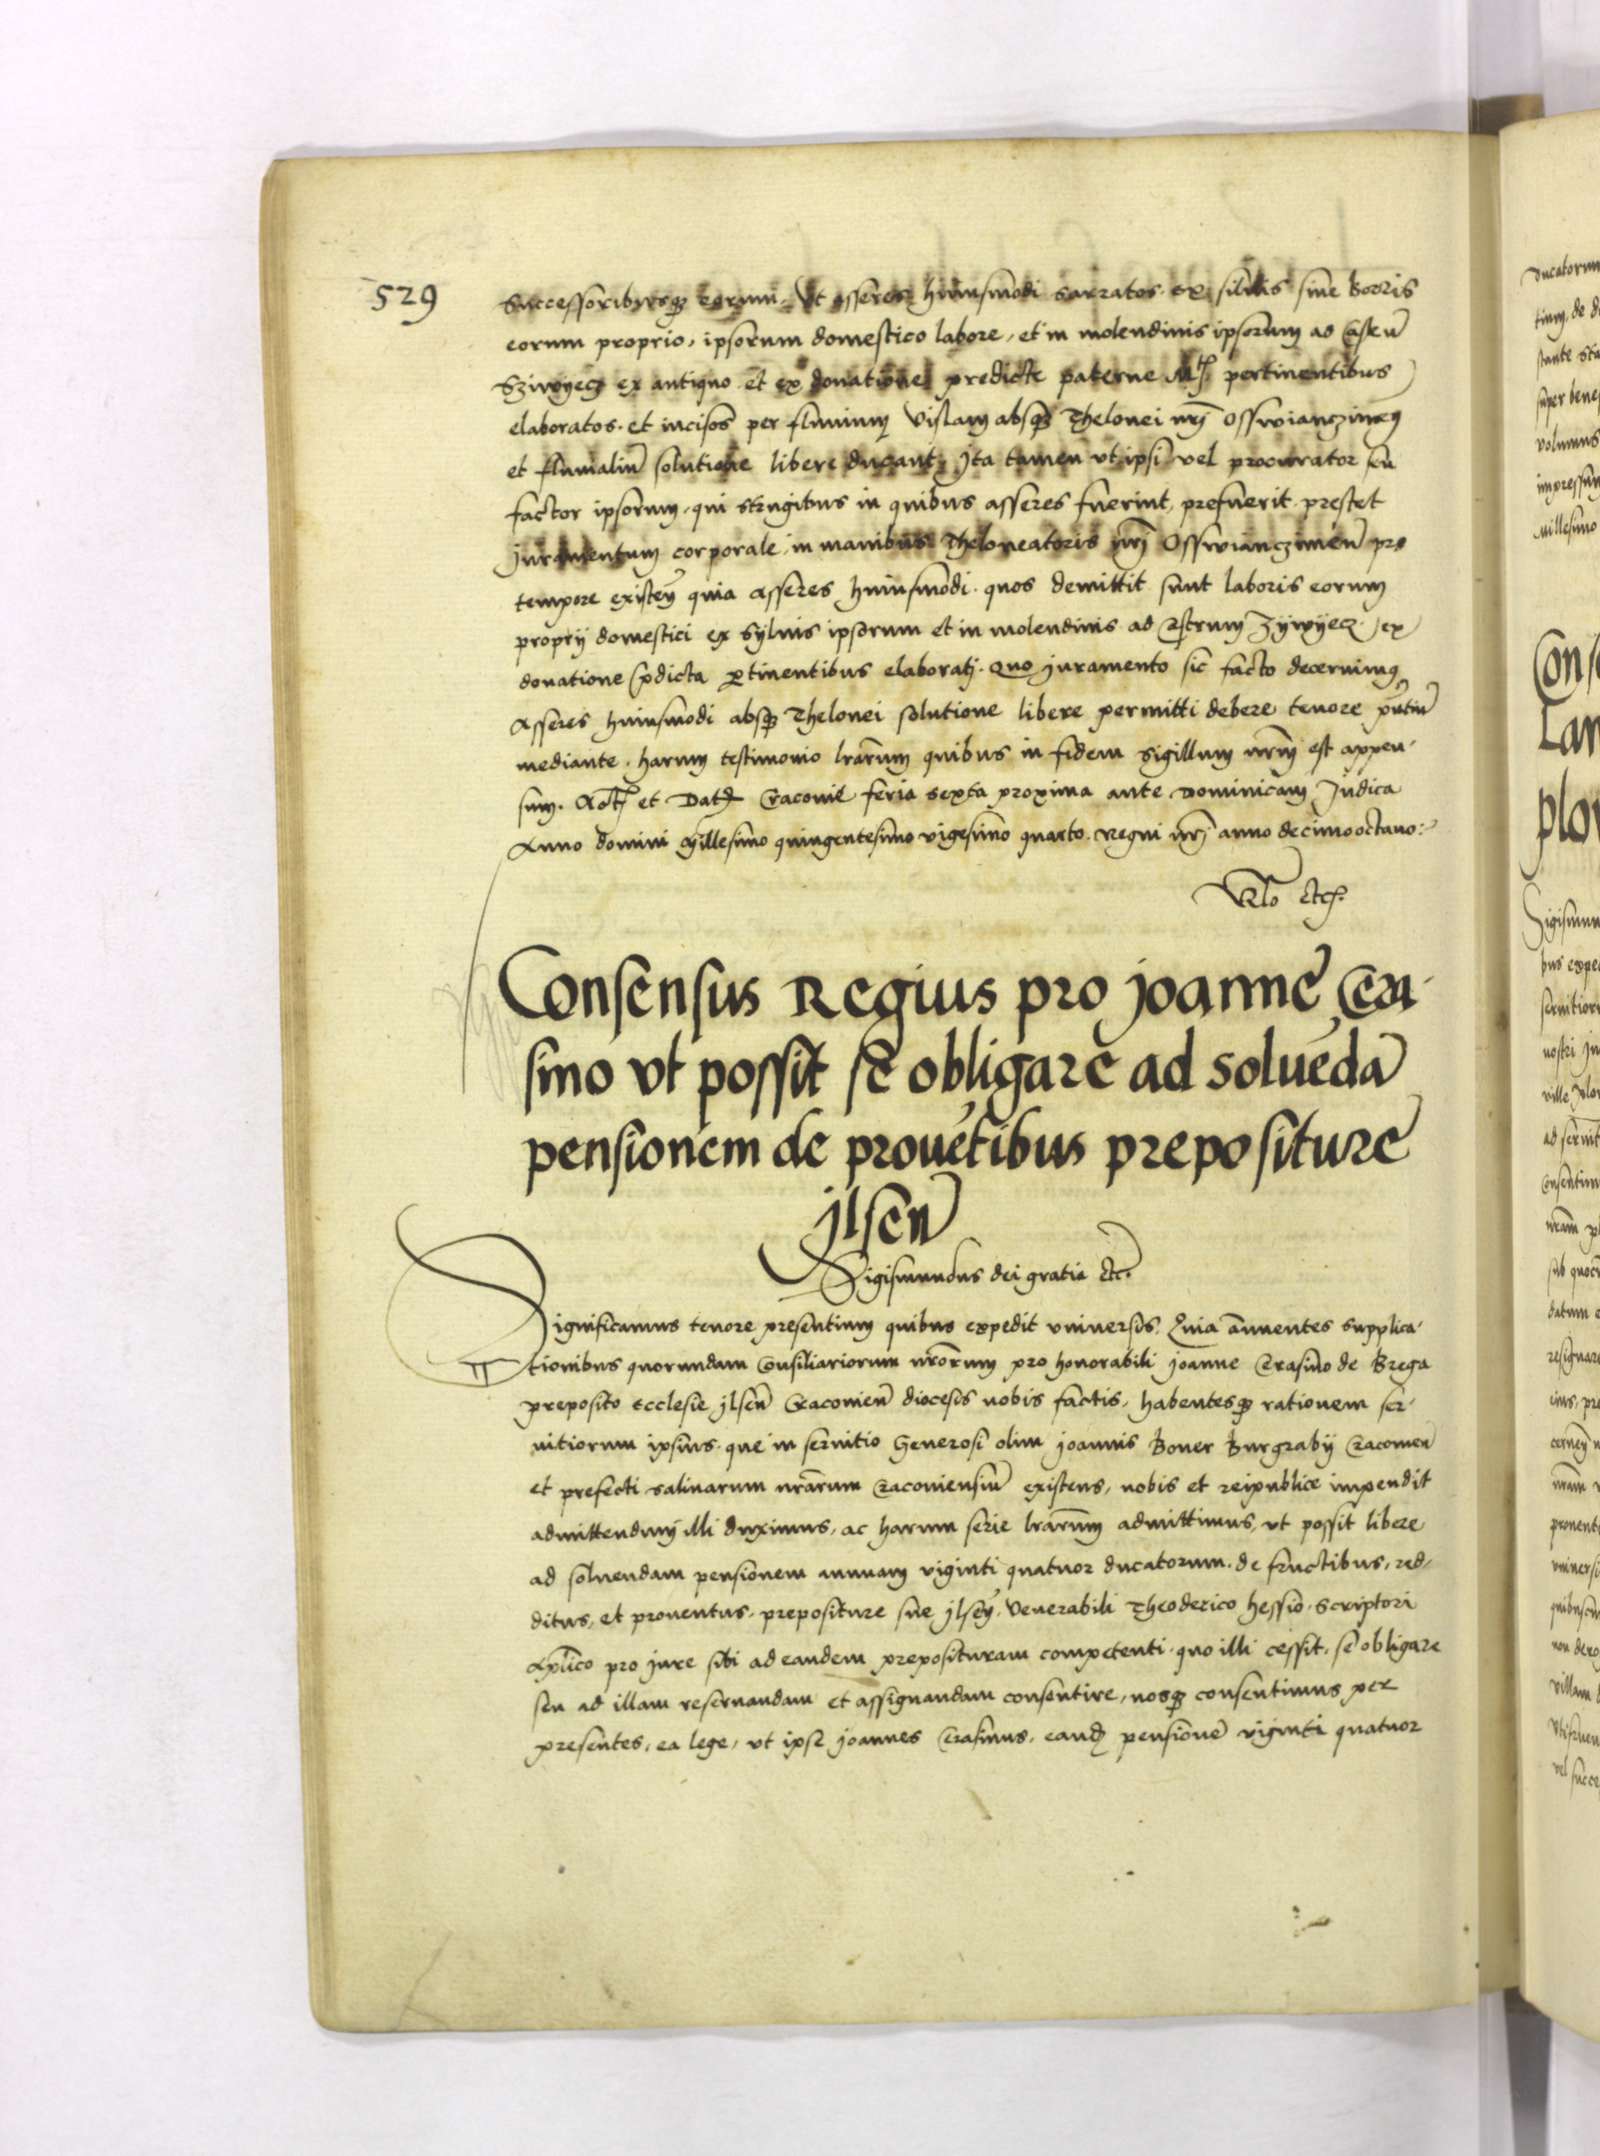 529
Successoribusque eorum. Ut asseres huiusmodi sarratos ex siluis siue Borris
eorum proprio, ipsorum domestico labore, et in molendinis ipsorum ad Castrũ
Sziwyecz ex antiquo et ex donatione predicte paterne Mtis pertinentibus
elaboratos et incisos per fluuium Vislam absque Thelonei nrĩ Osswianczimeñ
et fluuialiũ solutione libere ducant, Ita tamen ut ipsi vel procurator seu
factor ipsorum, qui strugibus in quibus asseres fuerint, prefuerit prestet
Juramentum corporale, in manibus Theloneatoris nrĩ Osswianczimeñ pro
tempore existeñ quia Asseres huiusmodi quos demittit sunt laboris eorum
proprij domestici ex Syluis ipsorum et in molendinis ad Castrum Zywyecz ex
donatione p̃dicta p̱tinentibus elaborati. Quo Juramento sic facto decernimus
Asseres huiusmodi absque Thelonei solutione libere permitti debere tenore pñtiũ
mediante. harum testimonio lrãrum quibus in fidem Sigillum nrm̃ est appen-
sum. Act. et Dat. Cracouiẽ feria sexta proxima ante Dominicam Judica
Anno domini Millesimo quingentesimo vigesimo quarto. Regni nrĩ anno decimooctauo:
Rlo etc.
Consensus Regius pro Joanne Era-
smo vt possit se obligare ad soluẽdã
pensionem de prouẽtibus prepositure
Jlseñ
Sigismundus dei gratia etc.
Significamus tenore presentium quibus expedit vniuersis. Quia annuentes supplica-
tionibus quorundam Consiliariorum nrõrum pro honorabili Joanne Erasmo de Brega
preposito Ecclesie Jlseñ Cracouieñ diocesis nobis factis, habentesque rationem ser-
uitiorum ipsius que in seruitio Generosi olim Joannis Boner Burgrabij Cracouieñ
et prefecti salinarum nrãrum Cracouiensiũ existens, nobis et reipublice impendit
admittendum illi duximus, ac harum serie lrãrum admittimus, vt possit libere
ad soluendam pensionem annuam viginti quatuor ducatorum de fructibus, red-
ditus, et prouentus prepositure sue Jlseñ, Venerabili Theoderico hessio Scriptori
Aplico pro jure sibi ad eandem preposituram competenti quo illi cessit, se obligare
seu ad illam reseruandam et assignandam consentire, nosque consentimus per
presentes, ea lege, vt ipse Joannes Erasmus, eandẽ pensionẽ viginti quatuor